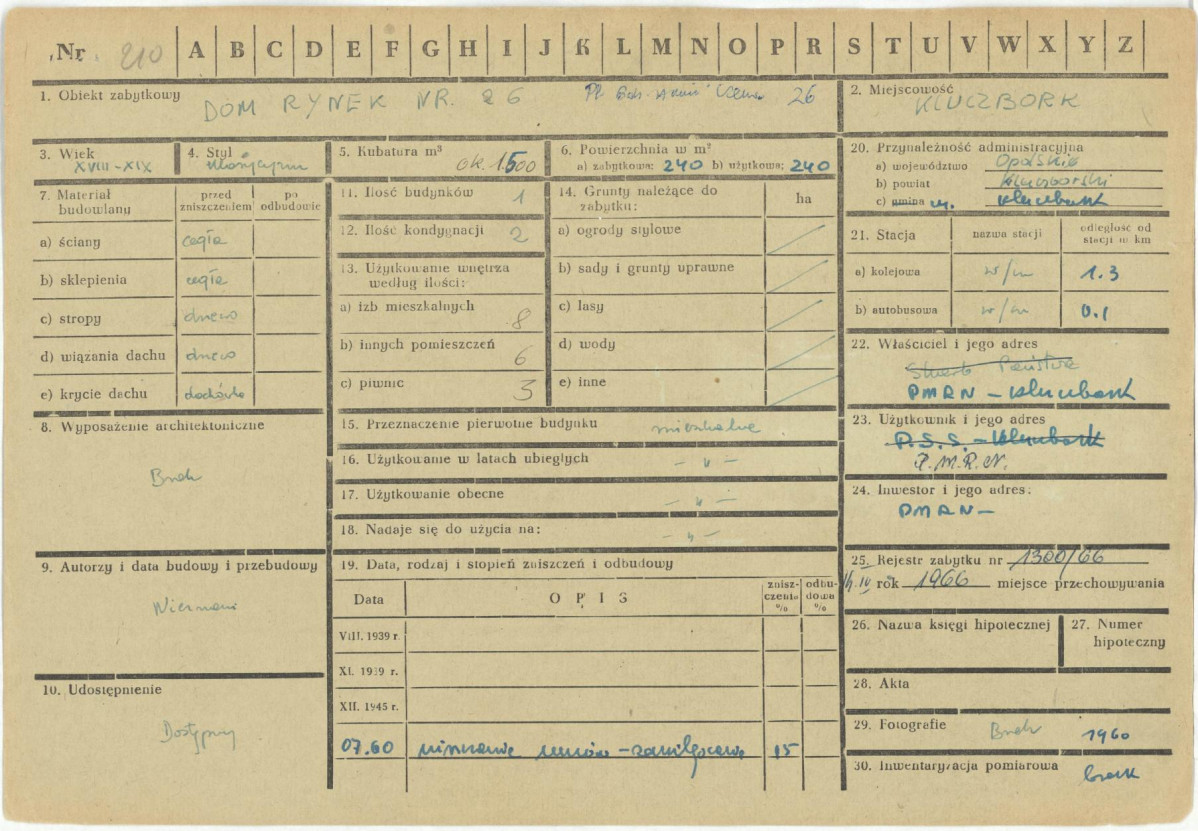 Nr 210 A B C D E F G H I J K L M N O P R S T U V W X Y Z
1. Obiekt zabytkowy
DOM RYNEK NR. 26 26
2. Miejscowość
KLUCZBORK
3. Wiek
XVIII-XIX
4. Styl
5. Kubatura m³
ok. 1500
6. Powierzchnia w m²
a) zabytkowa: 240 b) użytkowa: 240
7. Materiał budowlany
przed zniszczeniem
po odbudowie
a) ściany cegła
b) sklepienia cegła
c) stropy drewo
d) wiązania dachu drewo
e) krycie dachu dachówka
8. Wyposażenie architektoniczne
Brak
9. Autorzy i data budowy i przebudowy
Nieznani
10. Udostępnienie
Dostępny
11. Ilość budynków 1
12. Ilość kondygnacji 2
13. Użytkowanie wnętrza według ilości:
a) izb mieszkalnych 8
b) innych pomieszczeń 6
c) piwnic 3
14. Grunty należące do zabytku:
ha
a) ogrody stylowe
b) sady i grunty uprawne
c) lasy
d) wody
e) inne
15. Przeznaczenie pierwotne budynku mieszkalne
16. Użytkowanie w latach ubiegłych — „ —
17. Użytkowanie obecne — „ —
18. Nadaje się do użycia na: — „ —
19. Data, rodzaj i stopień zniszczeń i odbudowy
Data
O P I S
znisz-
czenia
%
odbu-
dowa
%
VIII. 1939 r.
XI. 1939 r.
XII. 1945 r.
07.60 murów - 15
20. Przynależność administracyjna
a) województwo Opolskie
b) powiat Kluczborski
c) gmina m. Kluczbork
21. Stacja
nazwa stacji
odległość od stacji w km
a) kolejowa w/m 1.3
b) autobusowa w/m 0.1
22. Właściciel i jego adres
Skarb Państwa
PMRN - Kluczbork
23. Użytkownik i jego adres
P.S.S. - Kluczbork
P.M.R.N.
24. Inwestor i jego adres:
PMRN -
25. Rejestr zabytku nr 1300/66
rok 1966 miejsce przechowywania
26. Nazwa księgi hipotecznej
27. Numer hipoteczny
28. Akta
29. Fotografie Brak 1960
30. Inwentaryzacja pomiarowa brak